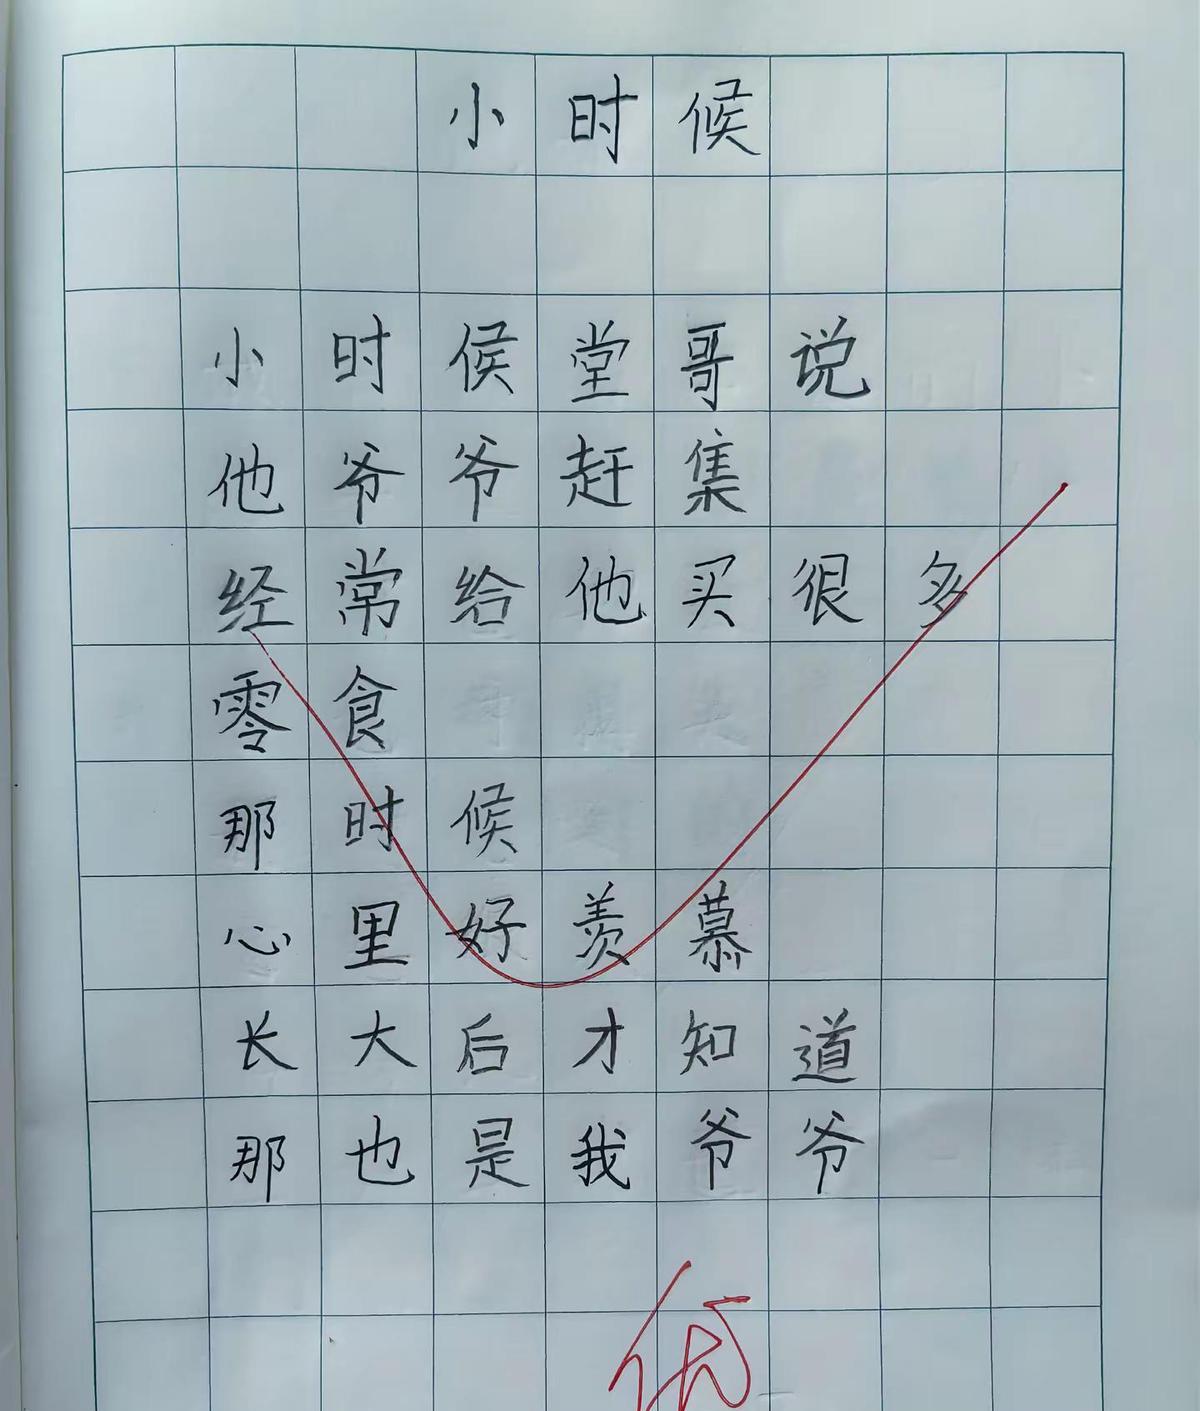 小时候
小时侯堂哥说
他爷爷赶集
经常给他买很多
零食
那时候
心里好羡慕
长大后才知道
那也是我爷爷
优